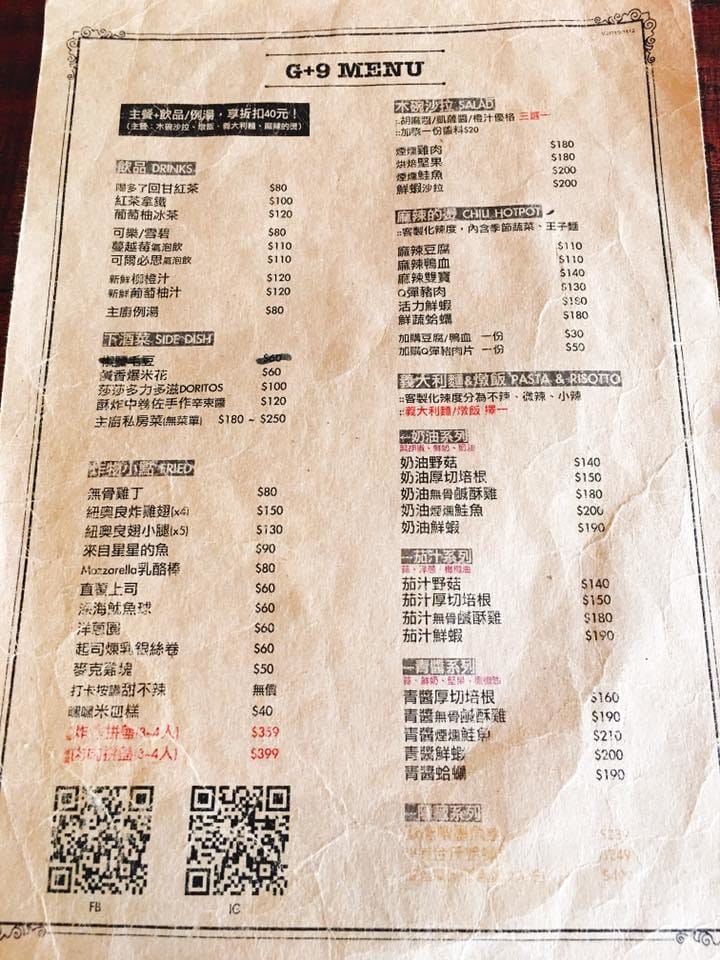 G+9 MENU
主餐+飲品/例湯，享折扣40元！
(主餐：木碗沙拉、燉飯、義大利麵、麻辣的燙)
飲品 DRINKS
陽多了回甘紅茶 $80
紅茶拿鐵 $100
葡萄柚冰茶 $120
可樂/雪碧 $80
蔓越莓氣泡飲 $110
可爾必思氣泡飲 $110
新鮮柳橙汁 $120
新鮮葡萄柚汁 $120
主廚例湯 $80
下酒菜 SIDE DISH
毛豆 $60
鹹香爆米花 $60
莎莎多力多滋DORITOS $100
酥炸中卷佐手作辛來醬 $120
主廚私房菜(無菜單) $180 ~ $250
炸物小點 FRIED
無骨雞丁 $80
紐奧良炸雞翅(x4) $150
紐奧良翅小腿(x5) $130
來自星星的魚 $90
Mozzarella乳酪棒 $80
直薯上司 $60
深海魷魚球 $60
洋蔥圈 $60
起司煉乳銀絲卷 $60
麥克雞塊 $50
打卡按讚甜不辣 無價
嘿嘿米血糕 $40
拼盤(3-4人) $359
拼盤(3-4人) $399
FB
IG
木碗沙拉 SALAD
::胡麻醬/凱薩醬/橙汁優格 三選一
::加漿一份醬料$20
煙燻雞肉 $180
烘焙堅果 $180
煙燻鮭魚 $200
鮮蝦沙拉 $200
麻辣的燙 CHILI HOTPOT
::客製化辣度，內含季節蔬菜、王子麵
麻辣豆腐 $110
麻辣鴨血 $110
麻辣雙寶 $140
Q彈豬肉 $130
活力鮮蝦 $180
鮮蔬蛤蠣 $180
加購豆腐/鴨血 一份 $30
加購Q彈豬肉片 一份 $50
義大利麵&燉飯 PASTA & RISOTTO
::客製化辣度分為不辣、微辣、小辣
::義大利麵/燉飯 擇一
奶油系列
奶油野菇 $140
奶油厚切培根 $150
奶油無骨鹹酥雞 $180
奶油煙燻鮭魚 $200
奶油鮮蝦 $190
茄汁系列
蒜、洋蔥、橄欖油
茄汁野菇 $140
茄汁厚切培根 $150
茄汁無骨鹹酥雞 $180
茄汁鮮蝦 $190
青醬系列
蒜、鮮奶、堅果、橄欖油
青醬厚切培根 $160
青醬無骨鹹酥雞 $190
青醬煙燻鮭魚 $210
青醬鮮蝦 $200
青醬蛤蠣 $190
隱藏系列